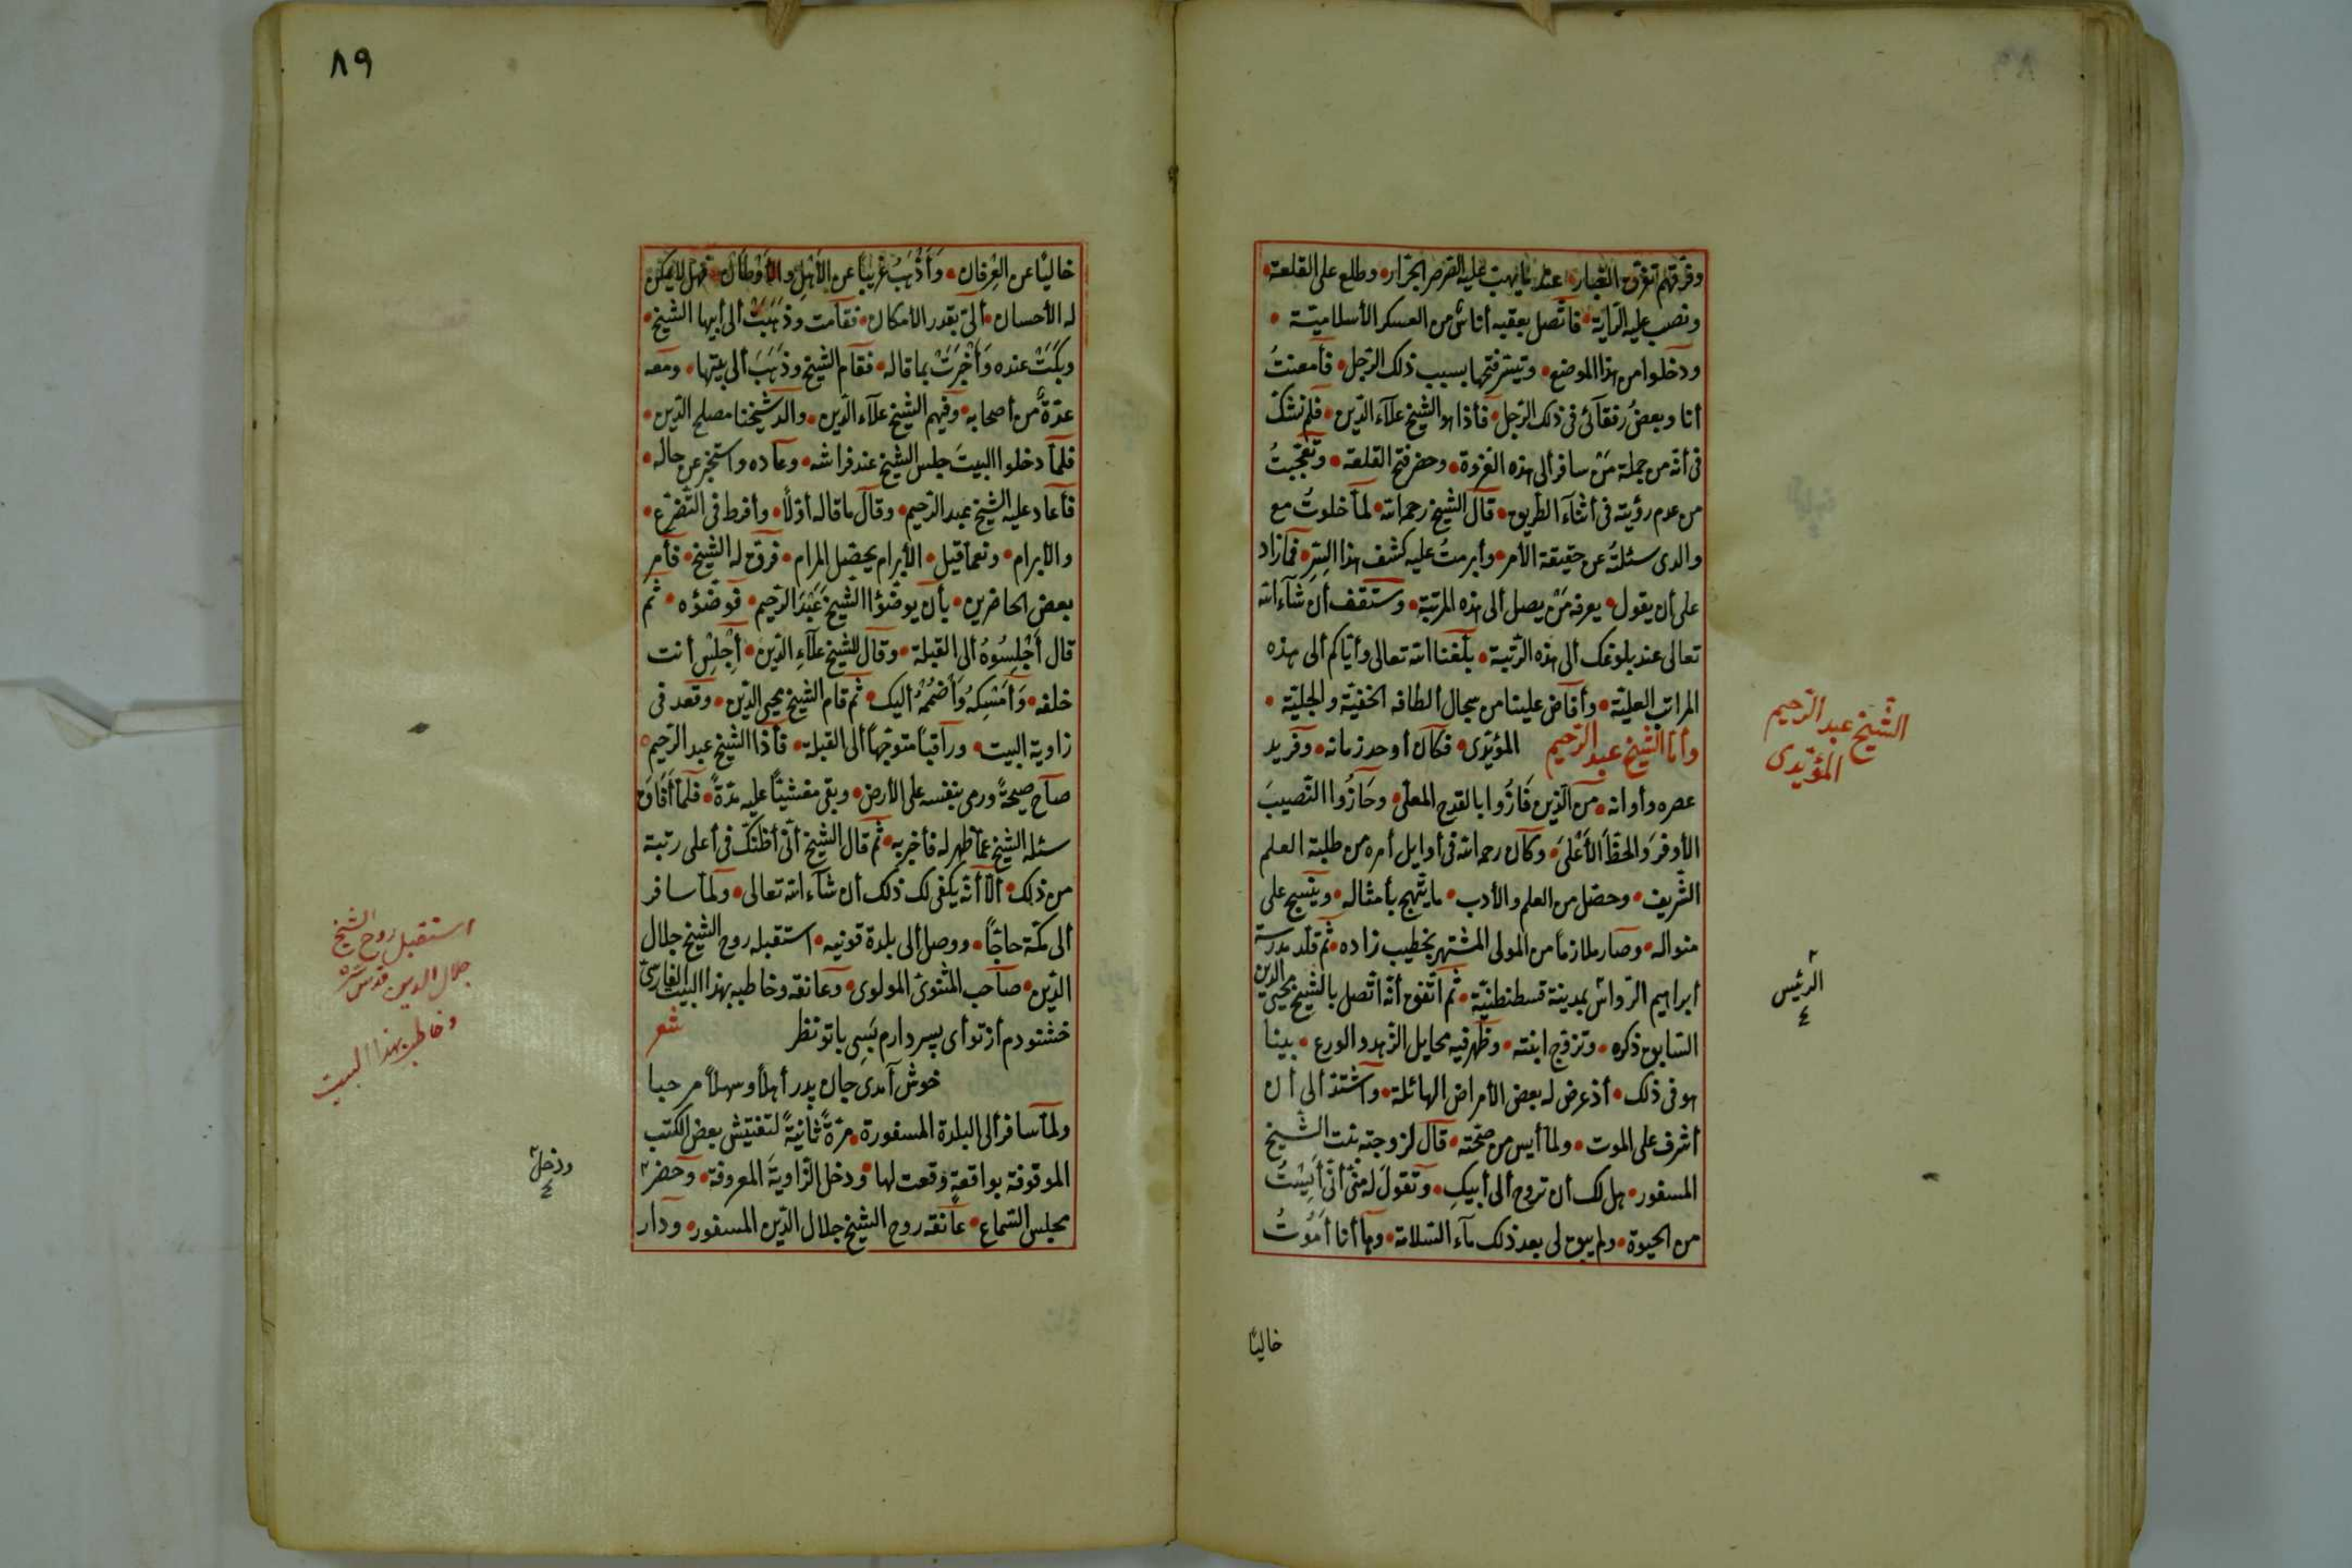 وفرّقهم تفرّق الغبار عند ما يهبّ عليه الصرصر الجرّار وطلع على القلعة
ونصب عليه الرّاية فاتّصل بعقبه أناس من العسكر الأسلاميّة
ودخلوا من هذا الموضع وتيسّر فتحها بسبب ذلك الرّجل فأمعنتُ
أنا وبعضُ رفقآئى فى ذلك الرّجل فأذا هو الشيخ علآء الدّين فلم نشكّ
فى أنّه من جملة مَنْ سافر ألى هذه الغزوة وحضر فتح القلعة وتعجّبتُ
من عدم رؤيته فى أثنآء الطريق قال الشيخ رحمه الله لمّا خلوتُ مع
والدى سئلتُه عن حقيقة الأمر وأبرمتُ عليه كشف هذا السِّرّ فمازاد
على أن يقول يعرفه مَنْ يصل ألى هذه المرتبة وستقف أن شآء الله
تعالى عند بلوغك ألى هذه الرّتبة بلّغنا الله تعالى وأيّاكم ألى هذه
المراتب العليّة وأفاض علينا من سجال ألطافه الخفيّة والجليّة
وأمّا الشيخ عبد الرّحيم المؤيّدى فكان أوحد زمانه وفريد
الشيخ عبد الرّحيم
المؤيّدى
عصره وأوانه من الّذين فَازُوا بالقدح المعلّى وحَازُوا النّصيبَ
الأوفرَ والحظّ الأَعْلَى وكان رحمه الله فى أوايل أمره من طلبة العلم
الشّريف وحصّل من العلم والأدب ما يبتهج بأمثاله وينسج على
منواله وصار ملازماً من المولى المشتهر بخطيب زاده ثمّ قلّد مدرسة
أبراهيم الرّوّاس بمدينة قسطنطنيّة ثم اتّفق أنّه اتّصل بالشيخ محيى الدين
الرئيس
السّابق ذكره وتزوّج ابنته وظهر فيه مخايل الزّهد والورع بينا
هو فى ذلك أذ عرض له بعض الأمراض الهائلة واشتدّ ألى أن
أشرف على الموت ولمّا أيس من صحّته قال لزوجته بنت الشيخ
المسفور هل لك أن تروح ألى أبيكِ وتقولَ له منّى أنّى أَيِسْتُ
من الحيوة ولم يبق لى بعد ذلك مآء السّلامة وها أنا أَمُوتُ
خاليًا
٨٩
خاليًا عن العِرفان وَأَذْهَبُ غريبًا عن الأهل والأوطان فهل لا يمكن
له الأحسان ألىّ بقدر الأمكان فقامت وذَهَبَتْ ألى أبيها الشيخ
وبكَتْ عنده وَأَخْبَرَتْ بما قاله فقام الشيخ وذَهَبَ ألى بيتها ومعه
عدّةٌ من أصحابه وفيهم الشيخ علآء الدّين والد شيخنا مصلح الدّين
فلمّا دخلوا البيتَ جلس الشيخ عند فراشه وعاده واستخبر عن حاله
فأعاد عليه الشيخ عبد الرّحيم وقال ما قاله أوّلاً وأفرط فى التّضرّع
والأبرام ونعما قيل الأبرام يحصّل المرام فرقّ له الشيخ فأمر
بعض الحاضرين بأن يوضّؤا الشيخَ عَبْدَ الرّحيم فوضّؤه ثم
قال أَجْلِسُوهُ ألى القبلة وقال للشيخ علآءِ الدّين أَجْلِسْ أنت
خلفه وَأَمْسِكهُ وَأَضْمُمْهُ أليك ثم قام الشيخ محيى الدّين وقعد فى
زاوية البيت وراقباً متوجّهاً ألى القبلة فأذا الشيخ عبد الرّحيم
صاح صيحةً ورمى بنفسه على الأرض وبقى مغشيّاً عليه مدّةً فلمّا أفَاق
سئله الشيخ عمّا ظهر له فأخبر به ثم قال الشيخ أنّى أظنّك فى أعلى رتبة
من ذلك ألاّ أنّه يكفى لك ذلك أن شآء الله تعالى ولمّا سافر
ألى مكّة حاجّاً ووصل ألى بلدة قونيه استقبله روح الشيخ جلال
الدّين صاحب المثنوىّ المولوى وعانقه وخاطبه بهذا البيت الفارسىّ
استقبل روح الشيخ
جلال الدين قدّس سرّه
وخاطبه بهذا البيت
خشنودم أز تو أى پسر دارم بَسِى با تو نظر شعر
خوش آمدى جان پدر أهلاً وسهلاً مرحبا
ولمّا سافر ألى البلدة المسفورة مرّةً ثانيةً لتفتيش بعض الكتب
الموقوفة بواقعةٍ وقعت لها ودخل الزّاويةَ المعروفة وحضر
ودخل
مجلس السّماع عانقه روح الشيخ جلال الدّين المسفور ودار